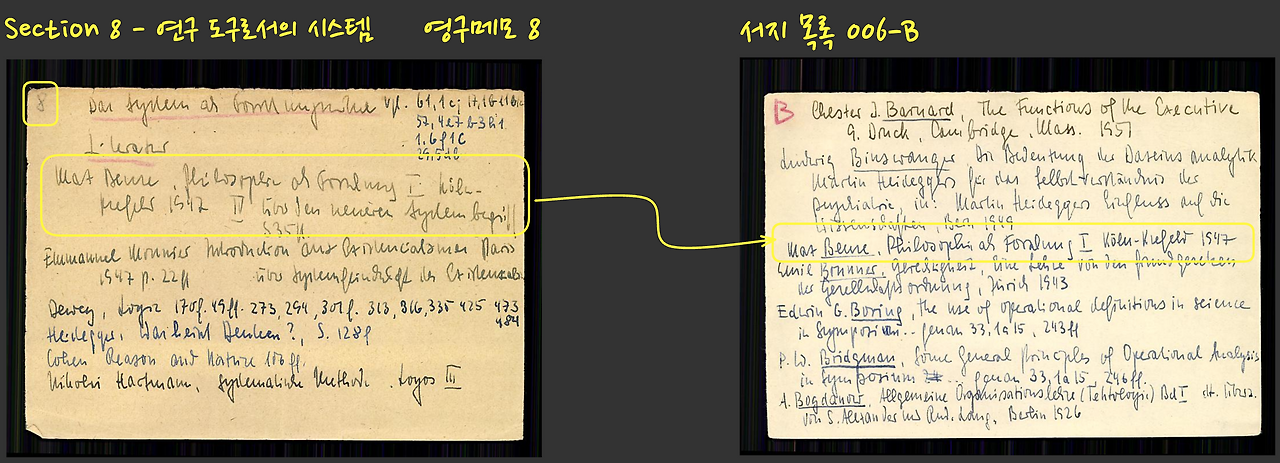 Section 8 - 연구 도구로서의 시스템 영구메모 8
8
Das System als
vgl. 61,1c; 17,1b
57, 4e7b3h1
1.6f1c
29,5d6
Literatur
Max Bense, Philosophie als Forschung I. Köln-
Krefeld 1947 II über den neueren Systembegriff
S 35ff
Emmanuel Mounier Introduction aux Existentialismes Paris
1947 p. 22ff über Systemfeindschaft des
Dewey, Logic 170f. 49ff. 273, 294, 301f. 313, 316, 335 425 473
484
Heidegger, Was heisst Denken?, S. 128f
Cohen Reason and Nature 106ff.
Nikolai Hartmann, Systematische Methode. Logos III
서지 목록 006-B
B Chester I. Barnard, The Functions of the Executive
9. Druck, Cambridge, Mass. 1951
Ludwig Binswanger, Die Bedeutung der Daseinsanalytik
Martin Heideggers für das Selbstverständnis der
Psychiatrie, in: Martin Heideggers Einfluss auf die
Wissenschaften, Bern 1949
Max Bense, Philosophie als Forschung I Köln-Krefeld 1947
Emil Brunner, Gerechtigkeit, Eine Lehre von den Grundgesetzen
der Gesellschaftsordnung, Zürich 1943
Edwin G. Boring, The use of operational definitions in science
in Symposium.. genau 33,1a15, 243ff
P. W. Bridgman, Some General Principles of Operational Analysis
in Symposium ... genau 33,1a15, 246ff.
A. Bogdanow, Allgemeine Organisationslehre (Tektologie) Bd I dt. übers.
von S. Alexander und Rud. Lang, Berlin 1926